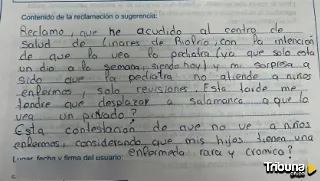 Contenido de la reclamación o sugerencia:
Reclamo, que he acudido al centro de
salud de Linares de Riofrio, con la intención
de que la vea la pediatra (ya que solo esta
un dia a la semana, siendo hoy) y mi sorpresa a
sido que la pediatra no atiende a niños
enfermos, solo revisiones. Esta tarde me
tendre que desplazar a salamanca a que la
vea un privado?
Esta contestación de que no ve a niños
enfermos, considerando que mis hijos tienen una
enfermedad rara y cronica?
Lugar, fecha y firma del usuario:
Tribuna